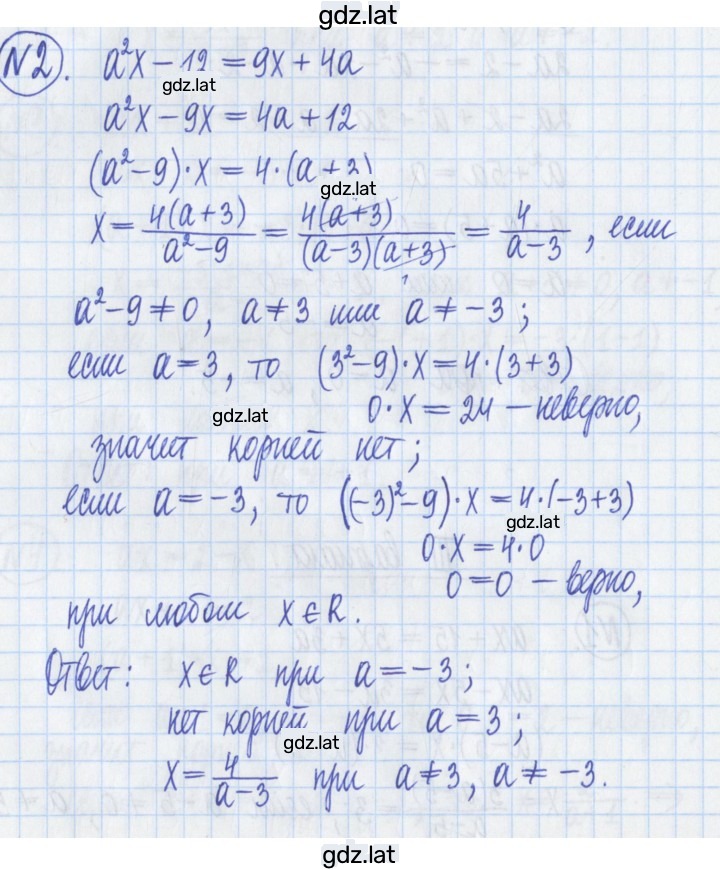 gdz.lat
N2. a²x - 12 = 9x + 4a
gdz.lat
a²x - 9x = 4a + 12
(a² - 9) · x = 4 · (a + 3)
gdz.lat
x = 4(a+3)/(a²-9) = 4(a+3)/((a-3)(a+3)) = 4/(a-3), если
a² - 9 ≠ 0, a ≠ 3 или a ≠ -3;
если a = 3, то (3² - 9) · x = 4 · (3 + 3)
gdz.lat 0 · x = 24 — неверно,
значит корней нет;
если a = -3, то ((-3)² - 9) · x = 4 · (-3 + 3)
gdz.lat
0 · x = 4 · 0
0 = 0 — верно,
при любом x ∈ R.
Ответ: x ∈ R при a = -3;
нет корней при a = 3;
gdz.lat
x = 4/(a-3) при a ≠ 3, a ≠ -3.
gdz.lat